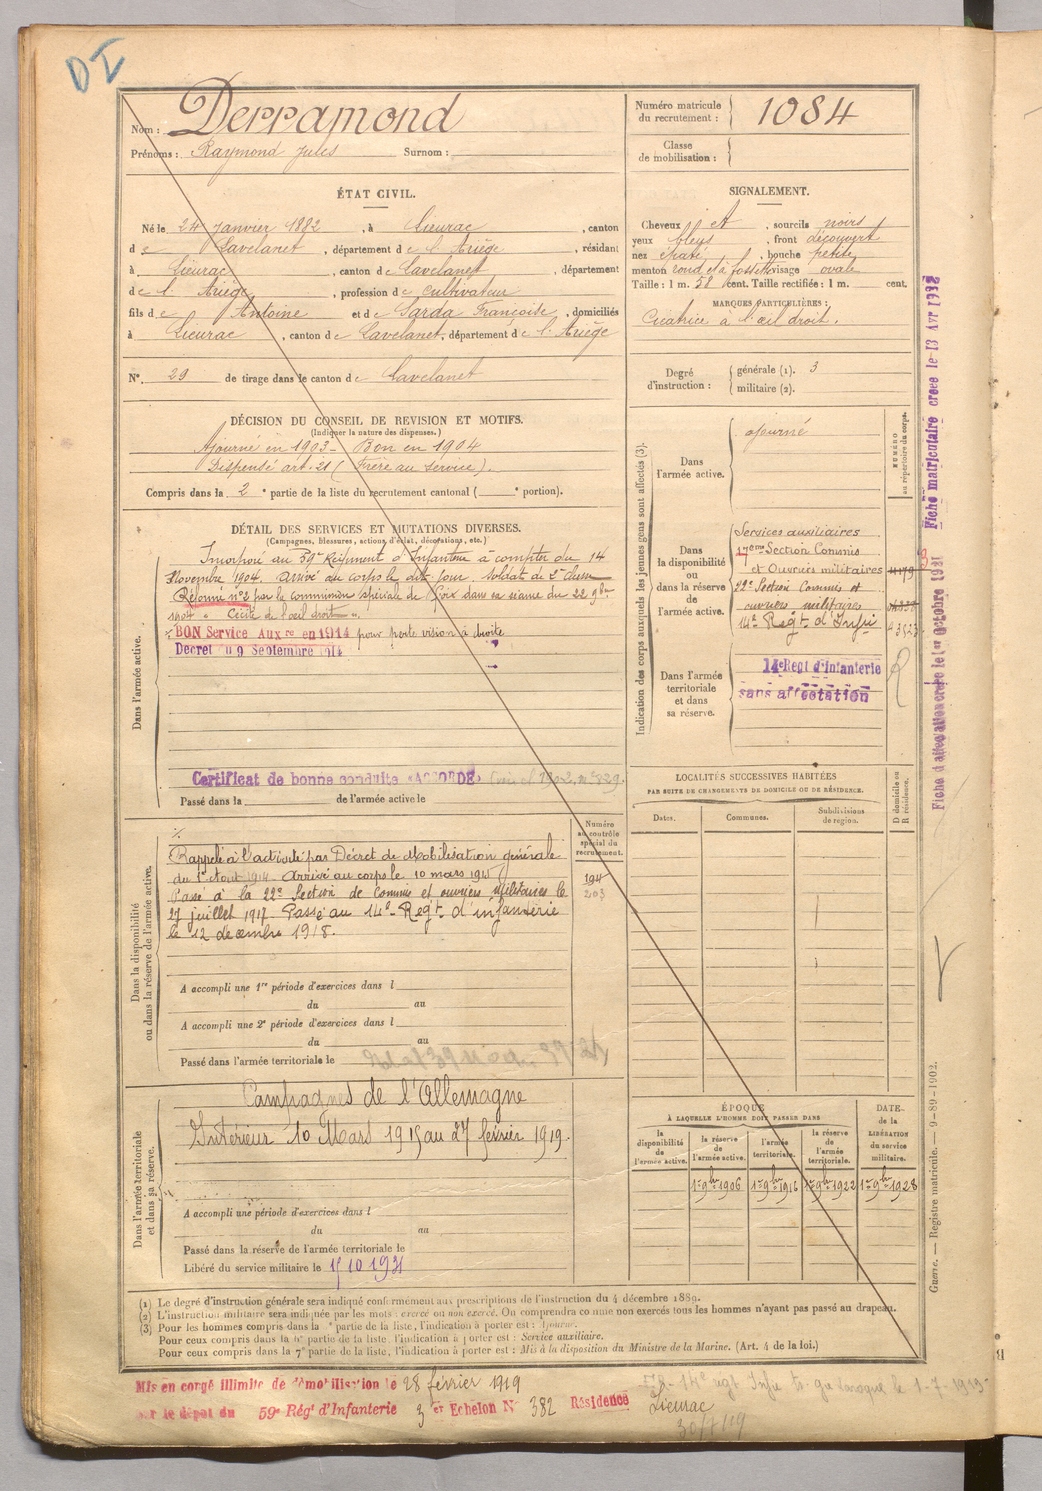 DI
Nom : Derramond
Prénoms : Raymond Jules Surnom :
Numéro matricule du recrutement : 1084
Classe de mobilisation :
ÉTAT CIVIL.
Né le 24 janvier 1882, à Lieurac, canton
de Lavelanet, département de l'Ariège, résidant
à Lieurac, canton de Lavelanet, département
de l'Ariège, profession de cultivateur
fils de Antoine et de Sarda Françoise, domiciliés
à Lieurac, canton de Lavelanet, département de l'Ariège
N° 29 de tirage dans le canton de Lavelanet
SIGNALEMENT.
Cheveux et, sourcils noirs
yeux bleus, front découvert
nez épaté, bouche petite
menton rond et à fossette visage ovale
Taille : 1 m. 58 cent. Taille rectifiée : 1 m. cent.
MARQUES PARTICULIÈRES :
Cicatrice à l'œil droit.
Degré d'instruction : générale (1). 3
militaire (2).
DÉCISION DU CONSEIL DE REVISION ET MOTIFS.
(Indiquer la nature des dispenses.)
Ajourné en 1903 - Bon en 1904
Dispensé art. 21 (Frère au service).
Compris dans la 2e partie de la liste du recrutement cantonal ( e portion).
DÉTAIL DES SERVICES ET MUTATIONS DIVERSES.
(Campagnes, blessures, actions d'éclat, décorations, etc.)
Dans l'armée active.
Incorporé au 59e Régiment d'Infanterie à compter du 14
Novembre 1904, arrivé au corps le dit jour, soldat de 2e classe
Réformé n°2 par la commission spéciale de Foix dans sa séance du 22 9bre
1904 " Cécité de l'œil droit ".
BON Service Auxre en 1914 pour perte vision à droite
Decret du 9 Septembre 1914
Certificat de bonne conduite «ACCORDÉ»
Passé dans la de l'armée active le
Indication des corps auxquels les jeunes gens sont affectés (3).
NUMÉRO au répertoire du corps.
Dans l'armée active. ajourné
Dans la disponibilité ou dans la réserve de l'armée active.
Services auxiliaires
17eme Section Commis
et Ouvriers militaires
22e Section Commis et
ouvriers militaires
14e Regt d'Infie
Dans l'armée territoriale et dans sa réserve.
14e Regt d'Infanterie
sans affectation
R
Fiche matriculaire créée le 13 Avr 1932
LOCALITÉS SUCCESSIVES HABITÉES
PAR SUITE DE CHANGEMENTS DE DOMICILE OU DE RÉSIDENCE.
Dates. Communes. Subdivisions de region. D domicile ou R résidence.
Dans la disponibilité ou dans la réserve de l'armée active.
Numéro au contrôle spécial du recrutement.
Rappelé à l'activité par Décret de Mobilisation générale
du 1er Aout 1914. Arrivé au corps le 10 mars 1915
Passé à la 22e Section de Commis et ouvriers militaires le
27 juillet 1917. Passé au 14e Regt d'infanterie
le 12 decembre 1918.
194
203
A accompli une 1re période d'exercices dans l
du au
A accompli une 2e période d'exercices dans l
du au
Passé dans l'armée territoriale le
Dans l'armée territoriale et dans sa réserve.
Campagnes de l'Allemagne
Intérieur 10 Mars 1915 au 27 février 1919.
A accompli une période d'exercices dans l
du au
Passé dans la réserve de l'armée territoriale le
Libéré du service militaire le 15 10 1931
ÉPOQUE
À LAQUELLE L'HOMME DOIT PASSER DANS
la disponibilité de l'armée active. la réserve de l'armée active. l'armée territoriale. la réserve de l'armée territoriale.
DATE de la LIBÉRATION du service militaire.
1er 9bre 1906 1er 9bre 1916 1er 9bre 1922 1er 9bre 1928
Guerre. — Registre matricule. — 9-89-1902.
(1) Le degré d'instruction générale sera indiqué conformément aux prescriptions de l'instruction du 4 décembre 1889.
(2) L'instruction militaire sera indiquée par les mots : exercé ou non exercé. On comprendra comme non exercés tous les hommes n'ayant pas passé au drapeau.
(3) Pour les hommes compris dans la e partie de la liste, l'indication à porter est : Ajourné.
Pour ceux compris dans la 6e partie de la liste, l'indication à porter est : Service auxiliaire.
Pour ceux compris dans la 7e partie de la liste, l'indication à porter est : Mis à la disposition du Ministre de la Marine. (Art. 4 de la loi.)
Mis en congé illimité de démobilisation le 28 février 1919
par le dépot du 59e Rég! d'Infanterie 3 er Echelon N° 382 Résidence Lieurac
30/7/19